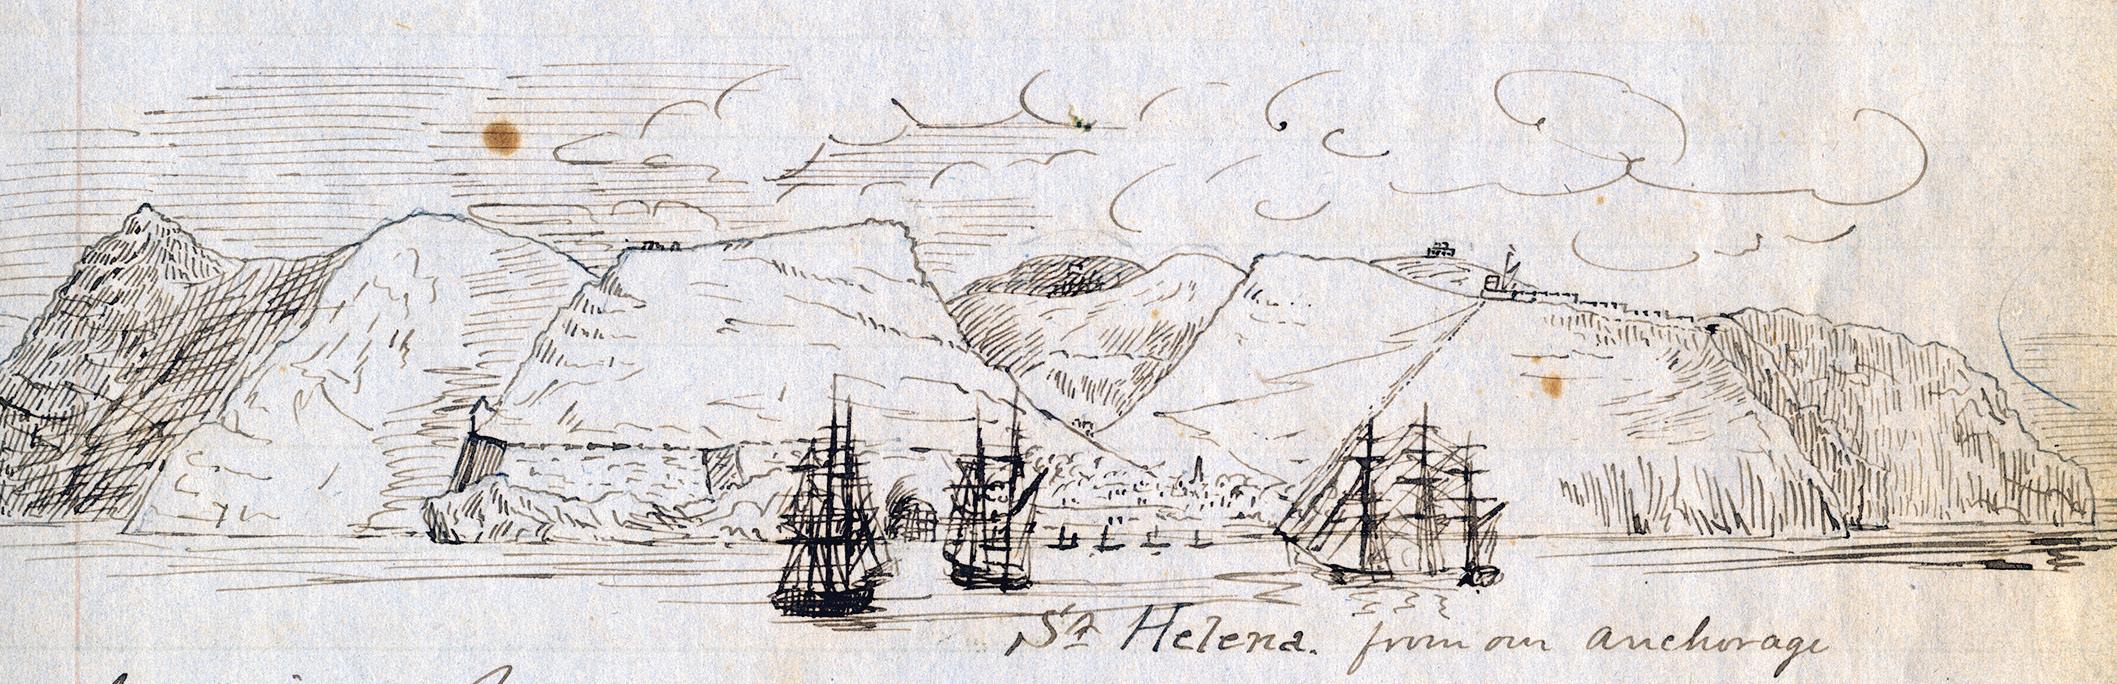 St Helena. from our anchorage